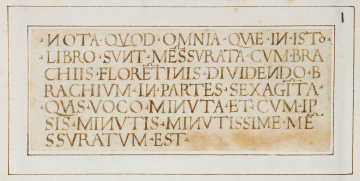 1
·NOTA·QVOD·OMNIA·QVAE·IN·ISTO
LIBRO·SVNT·MESSVRATA·CVM·BRA
CHIIS·FLORETINIS·DIVIDENDO·B
RACHIVM·IN·PARTES·SEXAGITA·
QVAS·VOCO·MINVTA·ET·CVM·IP
SIS·MINVTIS·MINVTISSIME·ME
SSVRATVM·EST·